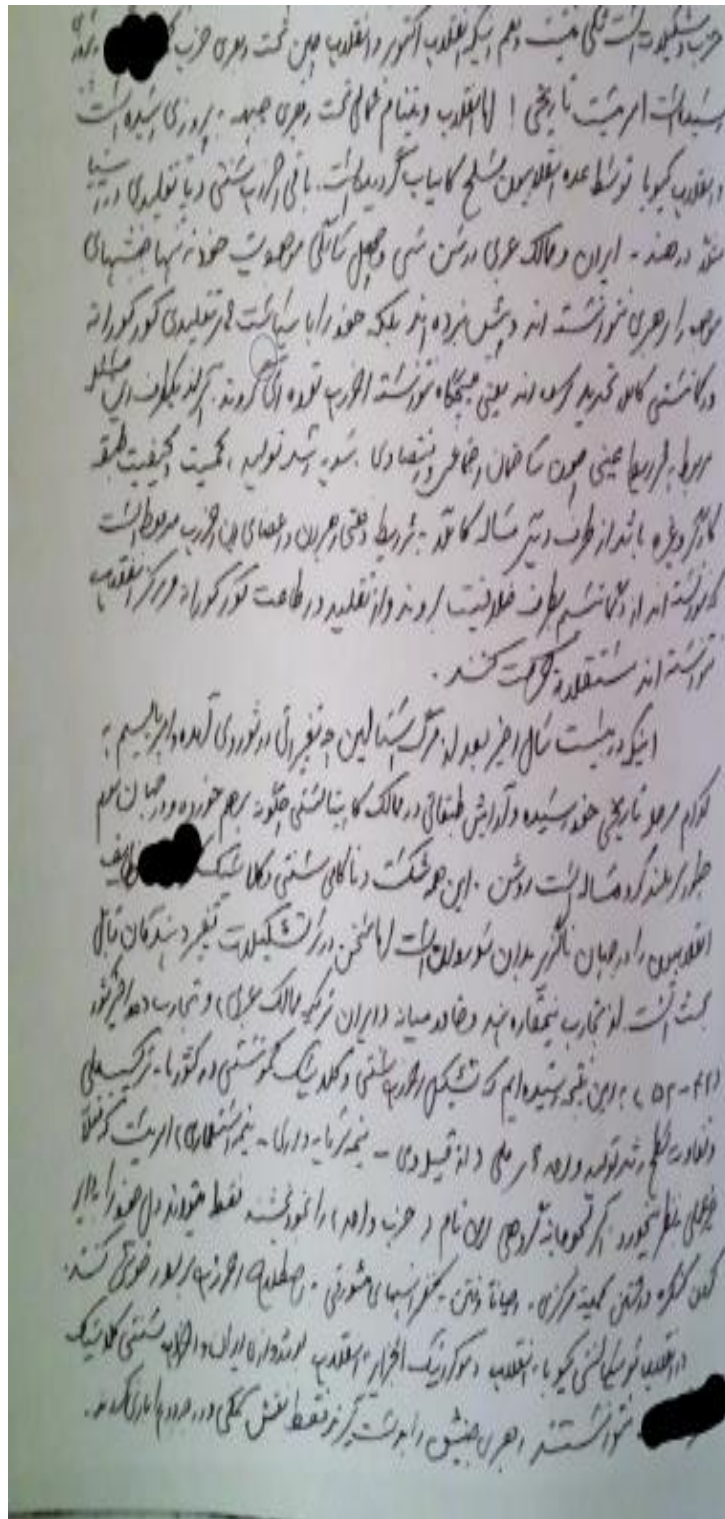 حزب و تشکیلات است شکی نیست و هم اینکه انقلاب اکتبر و انقلاب چین تحت رهبری حزب
رسیده است امریست تاریخی! اما انقلاب ویتنام شمالی تحت رهبری جبهه به پیروزی رسیده است
و انقلاب کیوبا توسط عده انقلابیون مسلح کامیاب گردیده است. باقی احزاب سنتی و یا تقلیدی در آسیا
مثلا در هند - ایران و ممالک عربی در سن سی و چهل سالگی موجودیت خود نه تنها جنبشهای
موجود را رهبری نتوانسته اند و پیش نبرده اند بلکه خود را با سیاست های تقلیدی کورکورانه
در کانستی کامل تجرید کرده اند یعنی هیچگاه نتوانسته احزاب توده ای گردند. اگر از یکطرف این مسئله
مربوط به شرایط عینی چون ساختمان اجتماعی و اقتصادی، سویه رشد تولید، کمیت و کیفیت طبقه
کارگر وغیره باشد از طرف دیگر مساله کاملا به شرایط ذهنی رهبران و اعضای این احزاب مربوط است
که نتوانسته اند از دگماتیسم بطرف خلاقیت بروند و از تقلید و اطاعت کورکورانه مراکز انقلاب
نتوانسته اند مستقلانه حرکت کنند.
اینکه در بیست سال اخیر بعد از مرگ استالین چه تغییراتی در تئوری آمده و امپریالیسم به
کدام مرحله تاریخی خود رسیده و آرایش طبقاتی در ممالک کاپیتالستی چگونه برهم خورده و در جهان سوم
چطور سر بلند کرد مساله است روشن. این همه شکست و ناکامی سنتی و کلاسیک وظایف
انقلابیون را در جهان ناگزیر بدان سو سوق داده است اما سخن در تشکیلات تغیر دهندگان قابل
بحث است. از تجارب نیمقاره هند و خاورمیانه (ایران ترکیه ممالک عربی) و تجارب دهه اخیر کشور
(۴۲-۵۲) به این نتیجه رسیده ایم که تشکیل احزاب سنتی و کلاسیک کمونستی در کشور ما با ترکیب ملی
و تفاوت سطح رشد تولید و واحد های ملی (از فیودالی - نیمه سرمایه داری - نیمه استعماری) امریست که فعلاً
غیرعملی بنظر میخورد. اگر قسماً گروهی این نام (حزب واحد) را بخود بخشند فقط میتوانند دل خود را با دایر
کردن کنگره داشتن کمیته مرکزی. و احیاناً رفتن به کنفرانسهای مشورتی به اصطلاح احزاب برادر خوش کنند.
در انقلاب سوسیالستی کیوبا، انقلاب دموکراتیک الجزایر، انقلاب بورژوازی ایران و احزاب سنتی کلاسیک
نتوانستند رهبری جنبش را بدست گیرند فقط نقش کمکی و درجه دوم را بازی کردند.